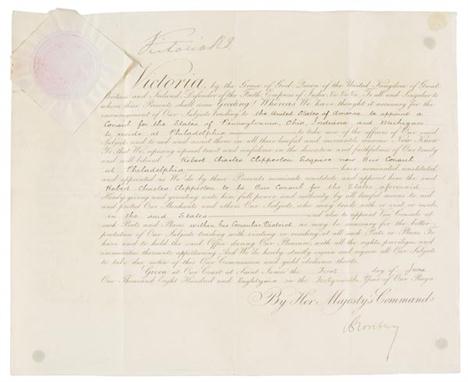 Victoria RI
Victoria, by the Grace of God, Queen of the United Kingdom of Great
Britain and Ireland, Defender of the Faith, Empress of India, &c. &c. &c. To all and Singular to
whom these Presents shall come, Greeting! Whereas We have thought it necessary for the
encouragement of Our Subjects trading to the United States of America to appoint a
Consul for the States of Pennsylvania, Ohio, Indiana and Michigan
to reside at Philadelphia to take care of the affairs of Our said
Subjects and to aid and assist them in all their lawful and mercantile Now Know
Ye that We reposing especial trust and confidence in the discretion and faithfulness of Our trusty
and well beloved Robert Charles Clipperton Esquire now Our Consul
at Philadelphia have nominated, constituted
and appointed as We do by these Presents nominate, constitute and appoint him the said
Robert Charles Clipperton to be Our Consul for the States aforesaid
Hereby giving and granting unto him full power and authority, by all lawful means to aid
and protect Our Merchants and others Our Subjects who may trade with or visit or reside
in the said States and also to appoint Vice Consuls at
such Ports and Places within his Consular District as may be necessary for the better
Our Subjects trading with residing or at all such Ports or Places To
have and to hold the said Office during Our Pleasure, with all the rights privileges and
emoluments thereunto appertaining And We do hereby strictly enjoin and require all Our Subjects
to take due notice of this Our Commission and yield obedience thereto.
Given at Our Court at Saint James's the First day of June
One Thousand Eight Hundred and Eighty in the Year of Our Reign.
By Her Majesty's Command